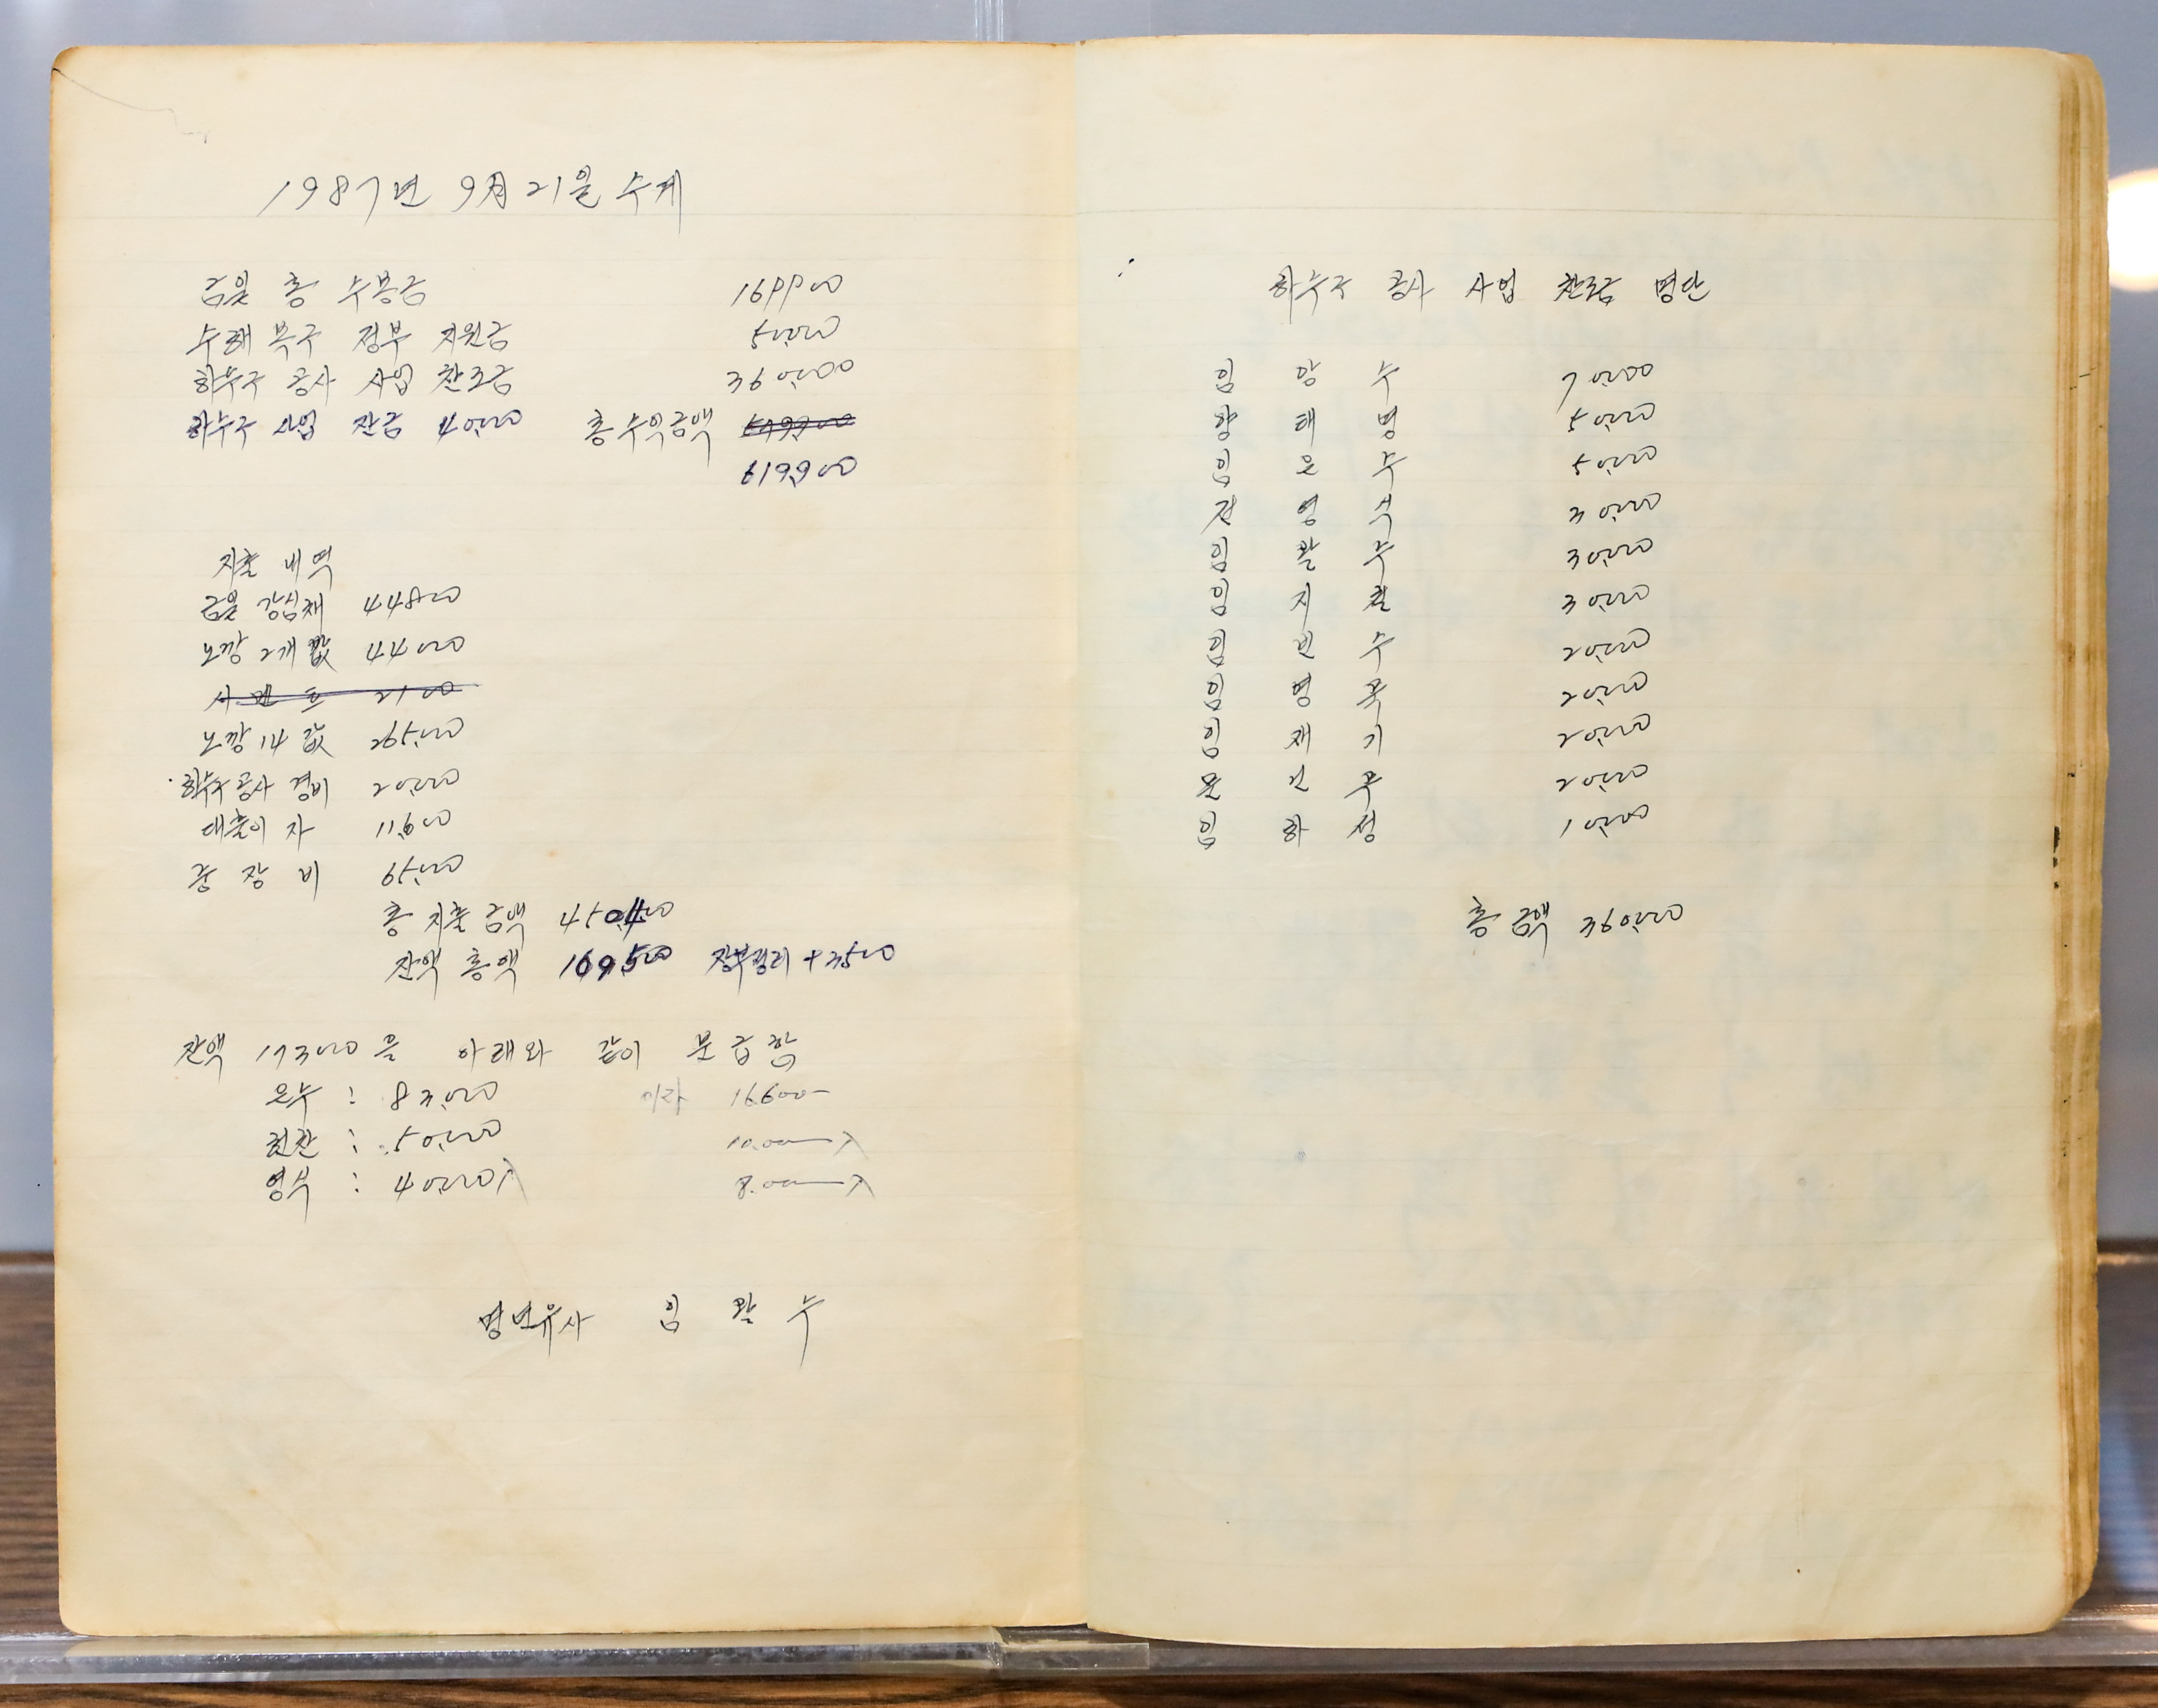 1987년 9月 21일 수계
금일 총 수봉금 169900
수해 복구 정부 지원금 50,000
하수구 공사 사업 찬조금 360,000
하수구 사업 잔금 40,000 총 수익금액 579,900
619,900
지출 내역
금일 강심채 44800
노깡 2개 값 44000
시멘트 2100
노깡 14 값 265,000
하수구 공사 경비 20,000
대출이자 11,600
중장비 65,000
총 지출 금액 450,400
잔액 총액 169,500 장부정리 + 3500
잔액 173000을 아래와 같이 분급함
은수 : 83,000 이자 16.600-
천찬 : 50,000 10.000 入
영식 : 40,000 入 8.000 入
명년유사 임 팔 수
하수구 공사 사업 찬조금 명단
임 앙 수 70,000
황 태 명 50,000
임 은 수 50,000
전 영 식 30,000
임 팔 수 30,000
임 지 찬 30,000
임 빈 수 20,000
임 명 국 20,000
임 재 기 20,000
문 건 주 20,000
임 하 성 10,000
총 금액 360,000